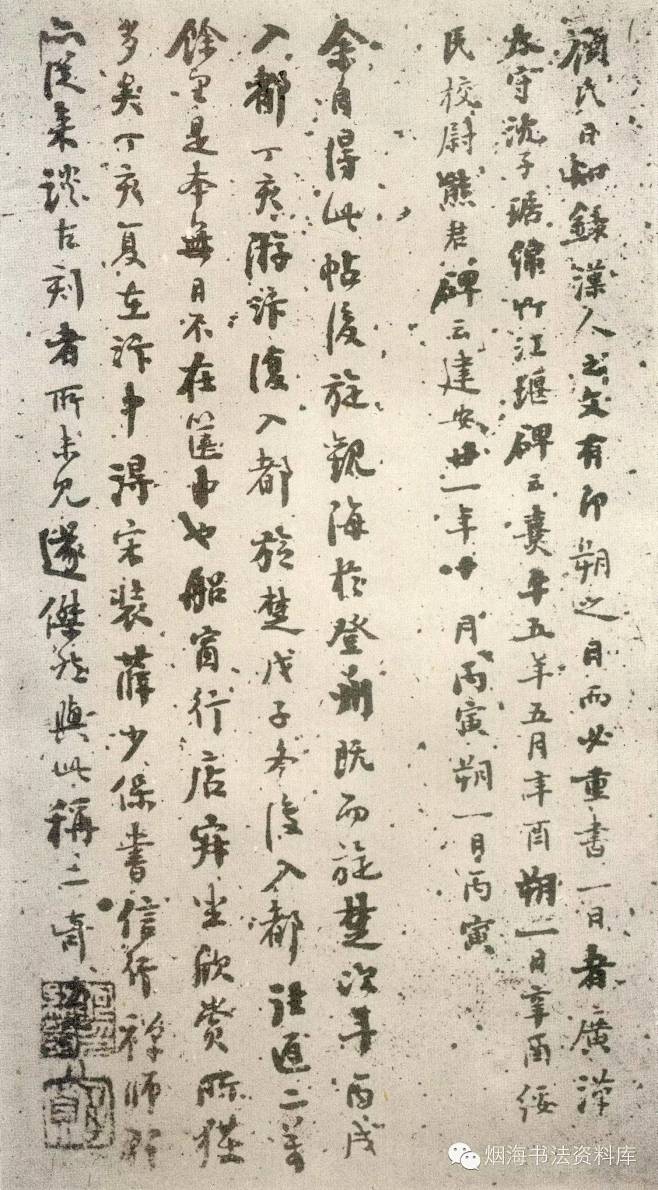 顧氏日知錄漢人之文有即朔之日而必重書一日者廣漢
太守沈子琚緜竹江堰碑云熹平五年五月辛酉朔一日辛酉綏
民校尉熊君碑云建安廿一年月丙寅朔一日丙寅
余自得此帖後旋觀海於登州既而旋楚次年丙戌
入都丁亥游汴復入都旋楚戊子冬復入都往返二萬
餘里是本無日不在篋中也船窗行店寂坐欣賞所獲
多矣丁亥夏在汴中得宋裝薛少保書信行禪師碑
亦從來談古刻者所未見遂傑然與此稱二奇
烟海书法资料库